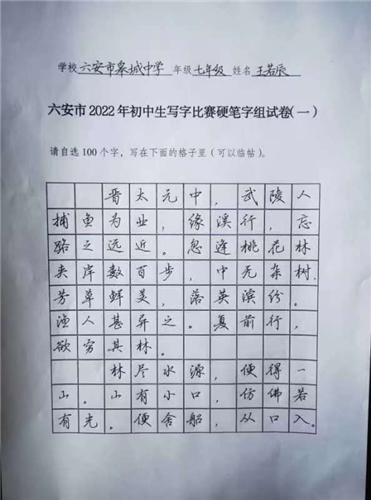 学校 六安市皋城中学 年级 七年级 姓名 王若辰
六安市2022年初中生写字比赛硬笔字组试卷(一)
请自选100个字，写在下面的格子里（可以临帖）。
晋太元中，武陵人
捕鱼为业，缘溪行，忘
路之远近。忽逢桃花林
夹岸数百步，中无杂树.
芳草鲜美，落英滨纷。
渔人甚异之。复前行，
欲穷其林。
林尽水源，便得一
山。山有小口，仿佛若
有光。便舍船，从口入。